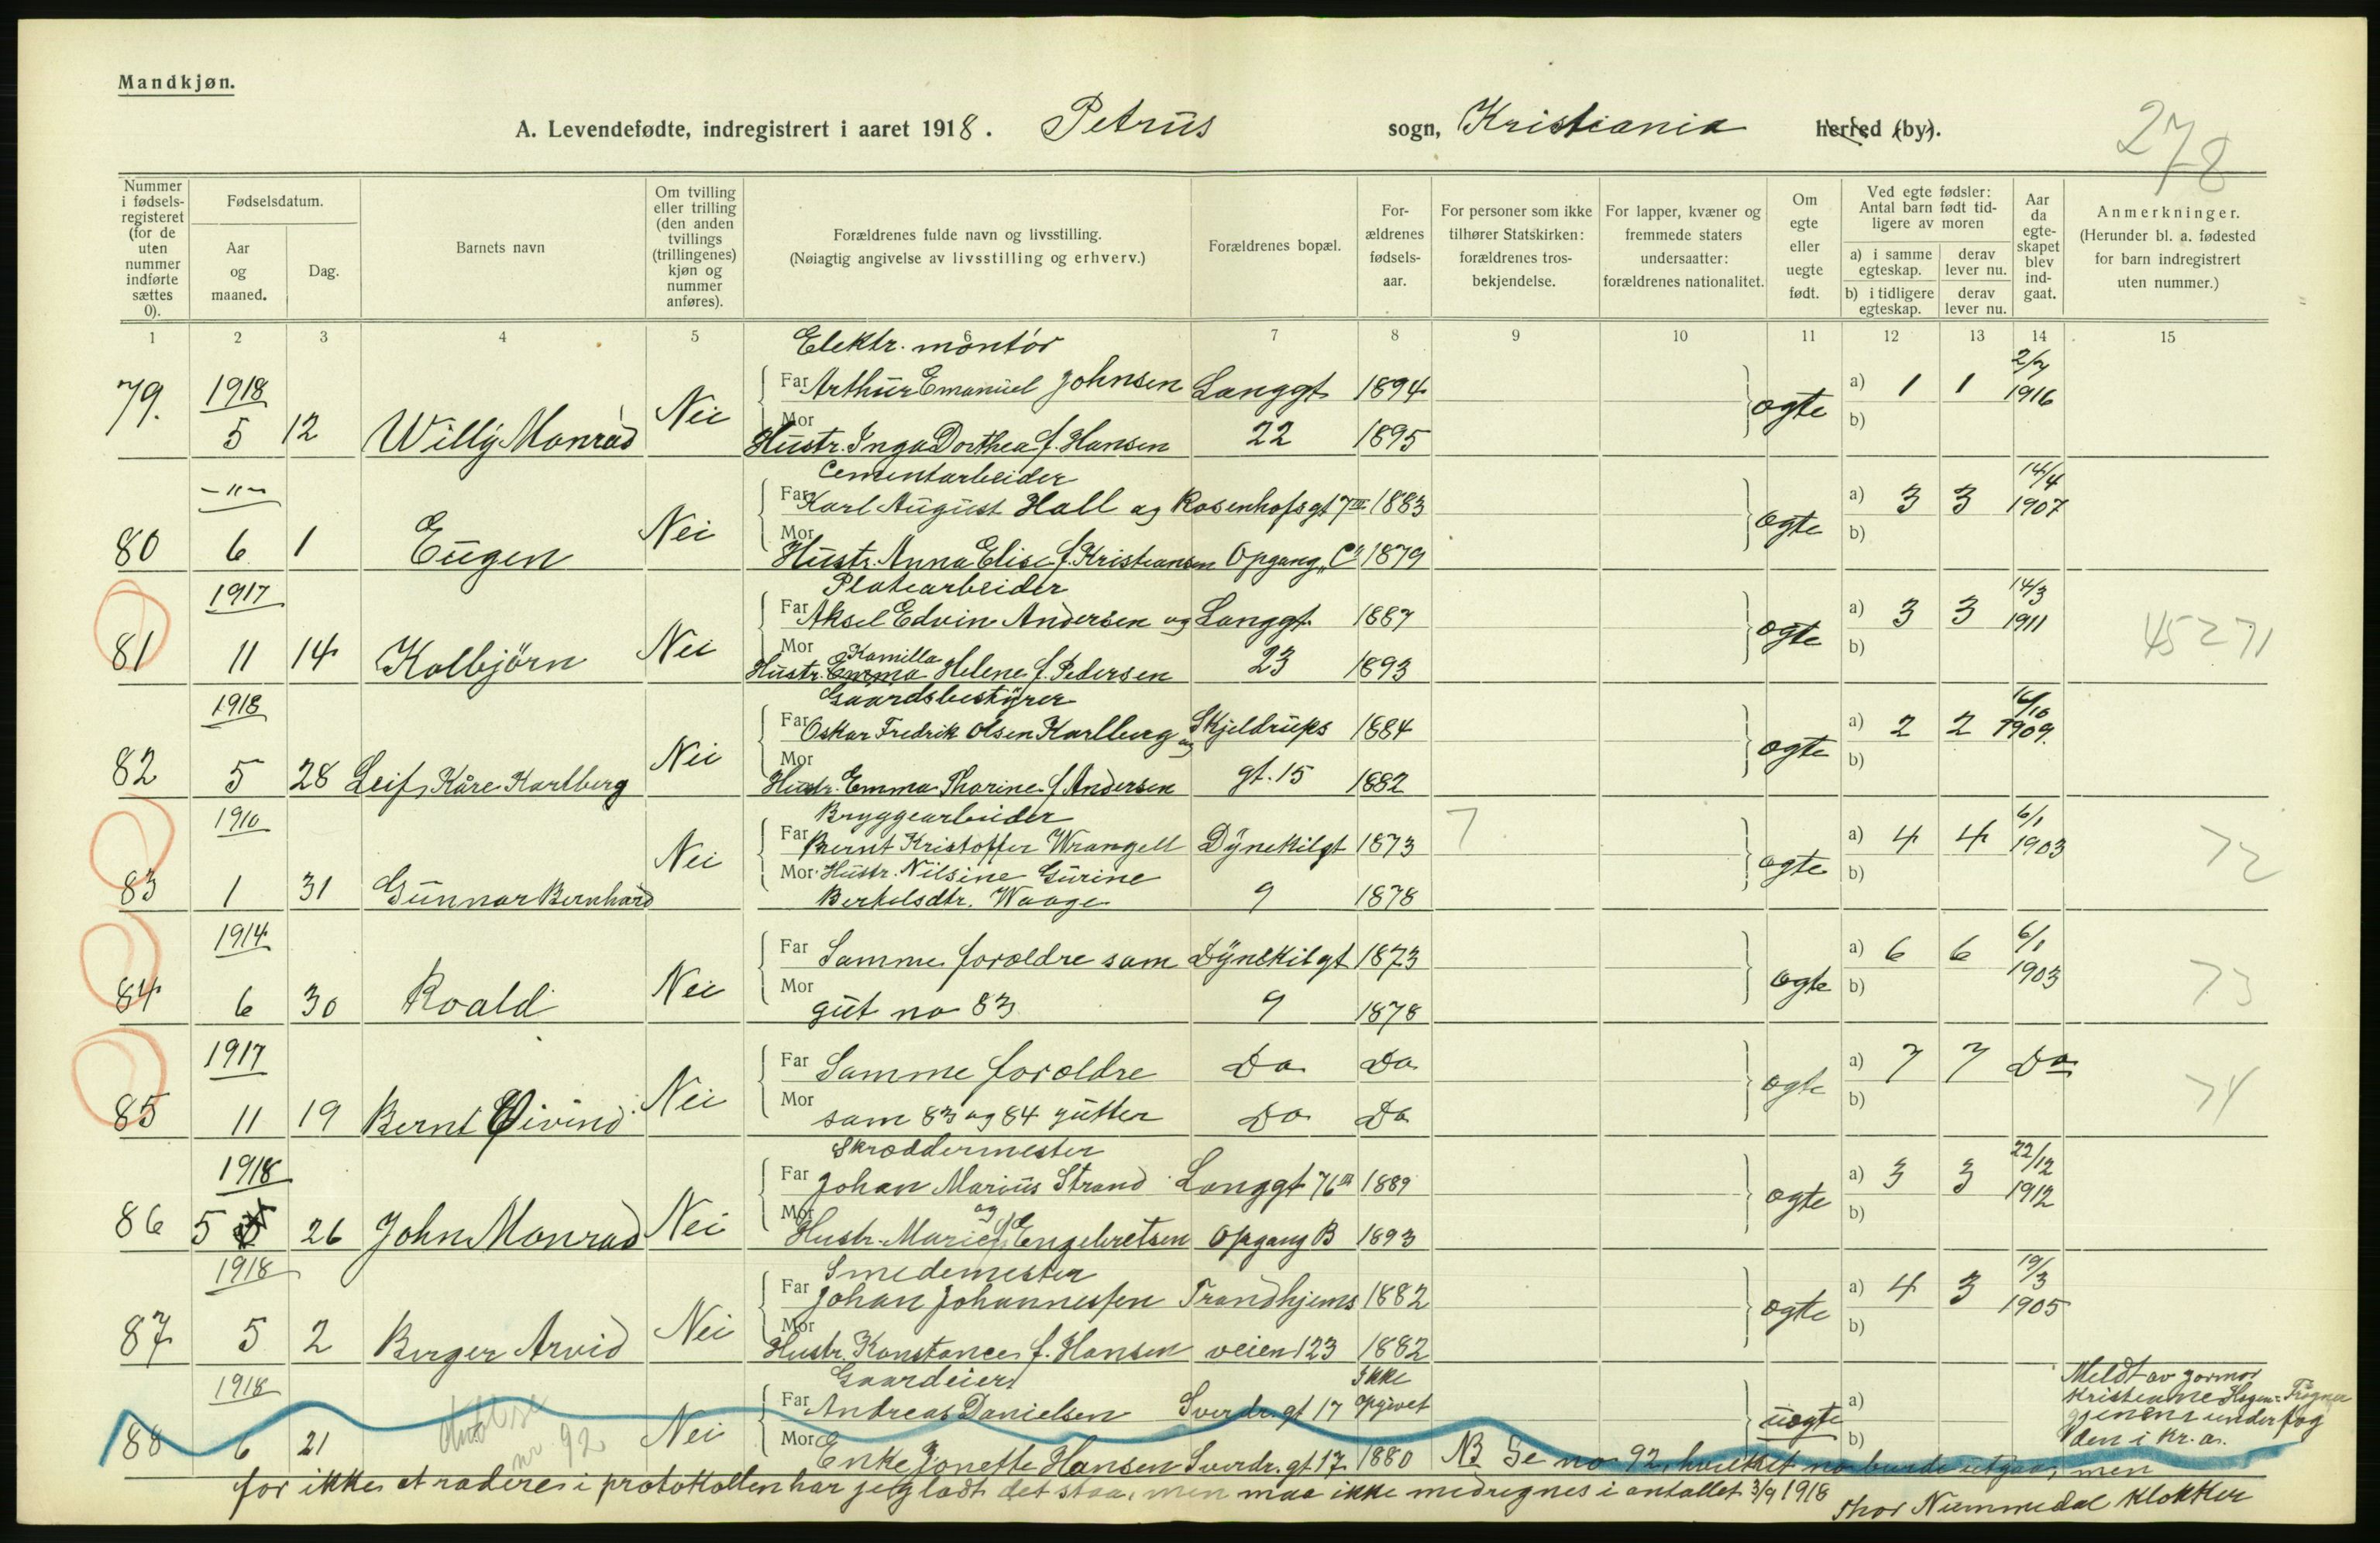 Mandkjøn.
A. Levendefødte, indregistrert i aaret 1918. Petrus sogn, Kristiania herred (by).
278
Nummer i fødsels-registeret (for de uten nummer indførte sættes 0).
Fødselsdatum.
Aar og maaned.
Dag.
Barnets navn
Om tvilling eller trilling (den anden tvillings (trillingenes) kjøn og nummer anføres).
Forældrenes fulde navn og livsstilling.
(Nøiagtig angivelse av livsstilling og erhverv.)
Forældrenes bopæl.
For-ældrenes fødsels-aar.
For personer som ikke tilhører Statskirken: forældrenes tros-bekjendelse.
For lapper, kvæner og fremmede staters undersaatter: forældrenes nationalitet.
Om egte eller uegte født.
Ved egte fødsler: Antal barn født tid-ligere av moren
a) i samme egteskap. derav lever nu.
b) i tidligere egteskap. derav lever nu.
Aar da egte-skapet blev ind-gaat.
Anmerkninger.
(Herunder bl. a. fødested for barn indregistrert uten nummer.)
1 2 3 4 5 6 7 8 9 10 11 12 13 14 15
Elektr. montör
79. 1918 Far Arthur Emanuel Johnsen Langgt 1894 a) 1 1 2/7 1916
5 12 Willy Monrad Nei Mor Hustr. Inga Dorthea f. Hansen 22 1895 ogte b)
Cementarbeider
-"- Far Karl August Hall og Rosenhofsgt 7 III 1883 a) 3 3 14/4 1907
80 6 1 Eugen Nei Mor Hustr. Anna Elise f. Kristiansen Opgang "C" 1879 ogte b)
Platearbeider
1917 Far Aksel Edvin Andersen og Langgt 1887 a) 3 3 14/3 1911
Kamilla
81 11 14 Kolbjörn Nei Mor Hustr. Emma Helene f. Pedersen 23 1893 ogte b) 45271
Gaardsbestyrer
1918 Far Oskar Fredrik Olsen Karlberg og Skjeldrups 1884 a) 2 2 16/10 1909.
82 5 28 Leif Kåre Karlberg Nei Mor Hustr. Emma Thorine f. Andersen gt. 15 1882 ogte b)
Bryggearbeider
1910 Far Bernt Kristoffer Wrangell Dynekilgt 1873 7 a) 4 4 6/1 1903
83 1 31 Gunnar Bernhard Nei Mor Hustr. Nilsine Gurine ogte b) 72
Berkelsdtr. Waage 9 1878
1914 Far Samme foroldre som Dynekilgt 1873 a) 6 6 6/1 1903
84 6 30 Roald Nei Mor gut no 83 9 1878 ogte b) 73
1917 Far Samme foroldre Do Do a) 7 7 Do
85 11 19 Bernt Eivind Nei Mor som 83 og 84 gutter Do Do ogte b) 74
Skroddermester
1918 Far Johan Marius Strand Langgt 76 1889 a) 3 3 22/12 1912
og
86 5 26 John Monrad Nei Mor Hustr. Marie f. Engebretsen Opgang B 1893 ogte b)
Smedemester
1918 Far Johan Johannessen Trondhjems 1882 a) 4 3 19/3 1905
87 5 2 Birger Arvid Nei Mor Hustr. Konstance f. Hansen veien 123 1882 ogte b)
Gaardeier
1918 Far Andreas Danielsen Sverdr. gt 17 Ikke opgivet a) Meldt av jormor
Kristiane Hagen
88 6 21 nr. 92 Nei Mor Enke Jonette Hansen Sverdr. gt 17 1880 uogte b) den i Kr. a.
NB Se no 92, hvilket no burde utgaa, men
for ikke at radere i protokollen har jeg ladt det staa, men maa ikke medregnes i antallet 3/9 1918
Thor Nummedal Klokker